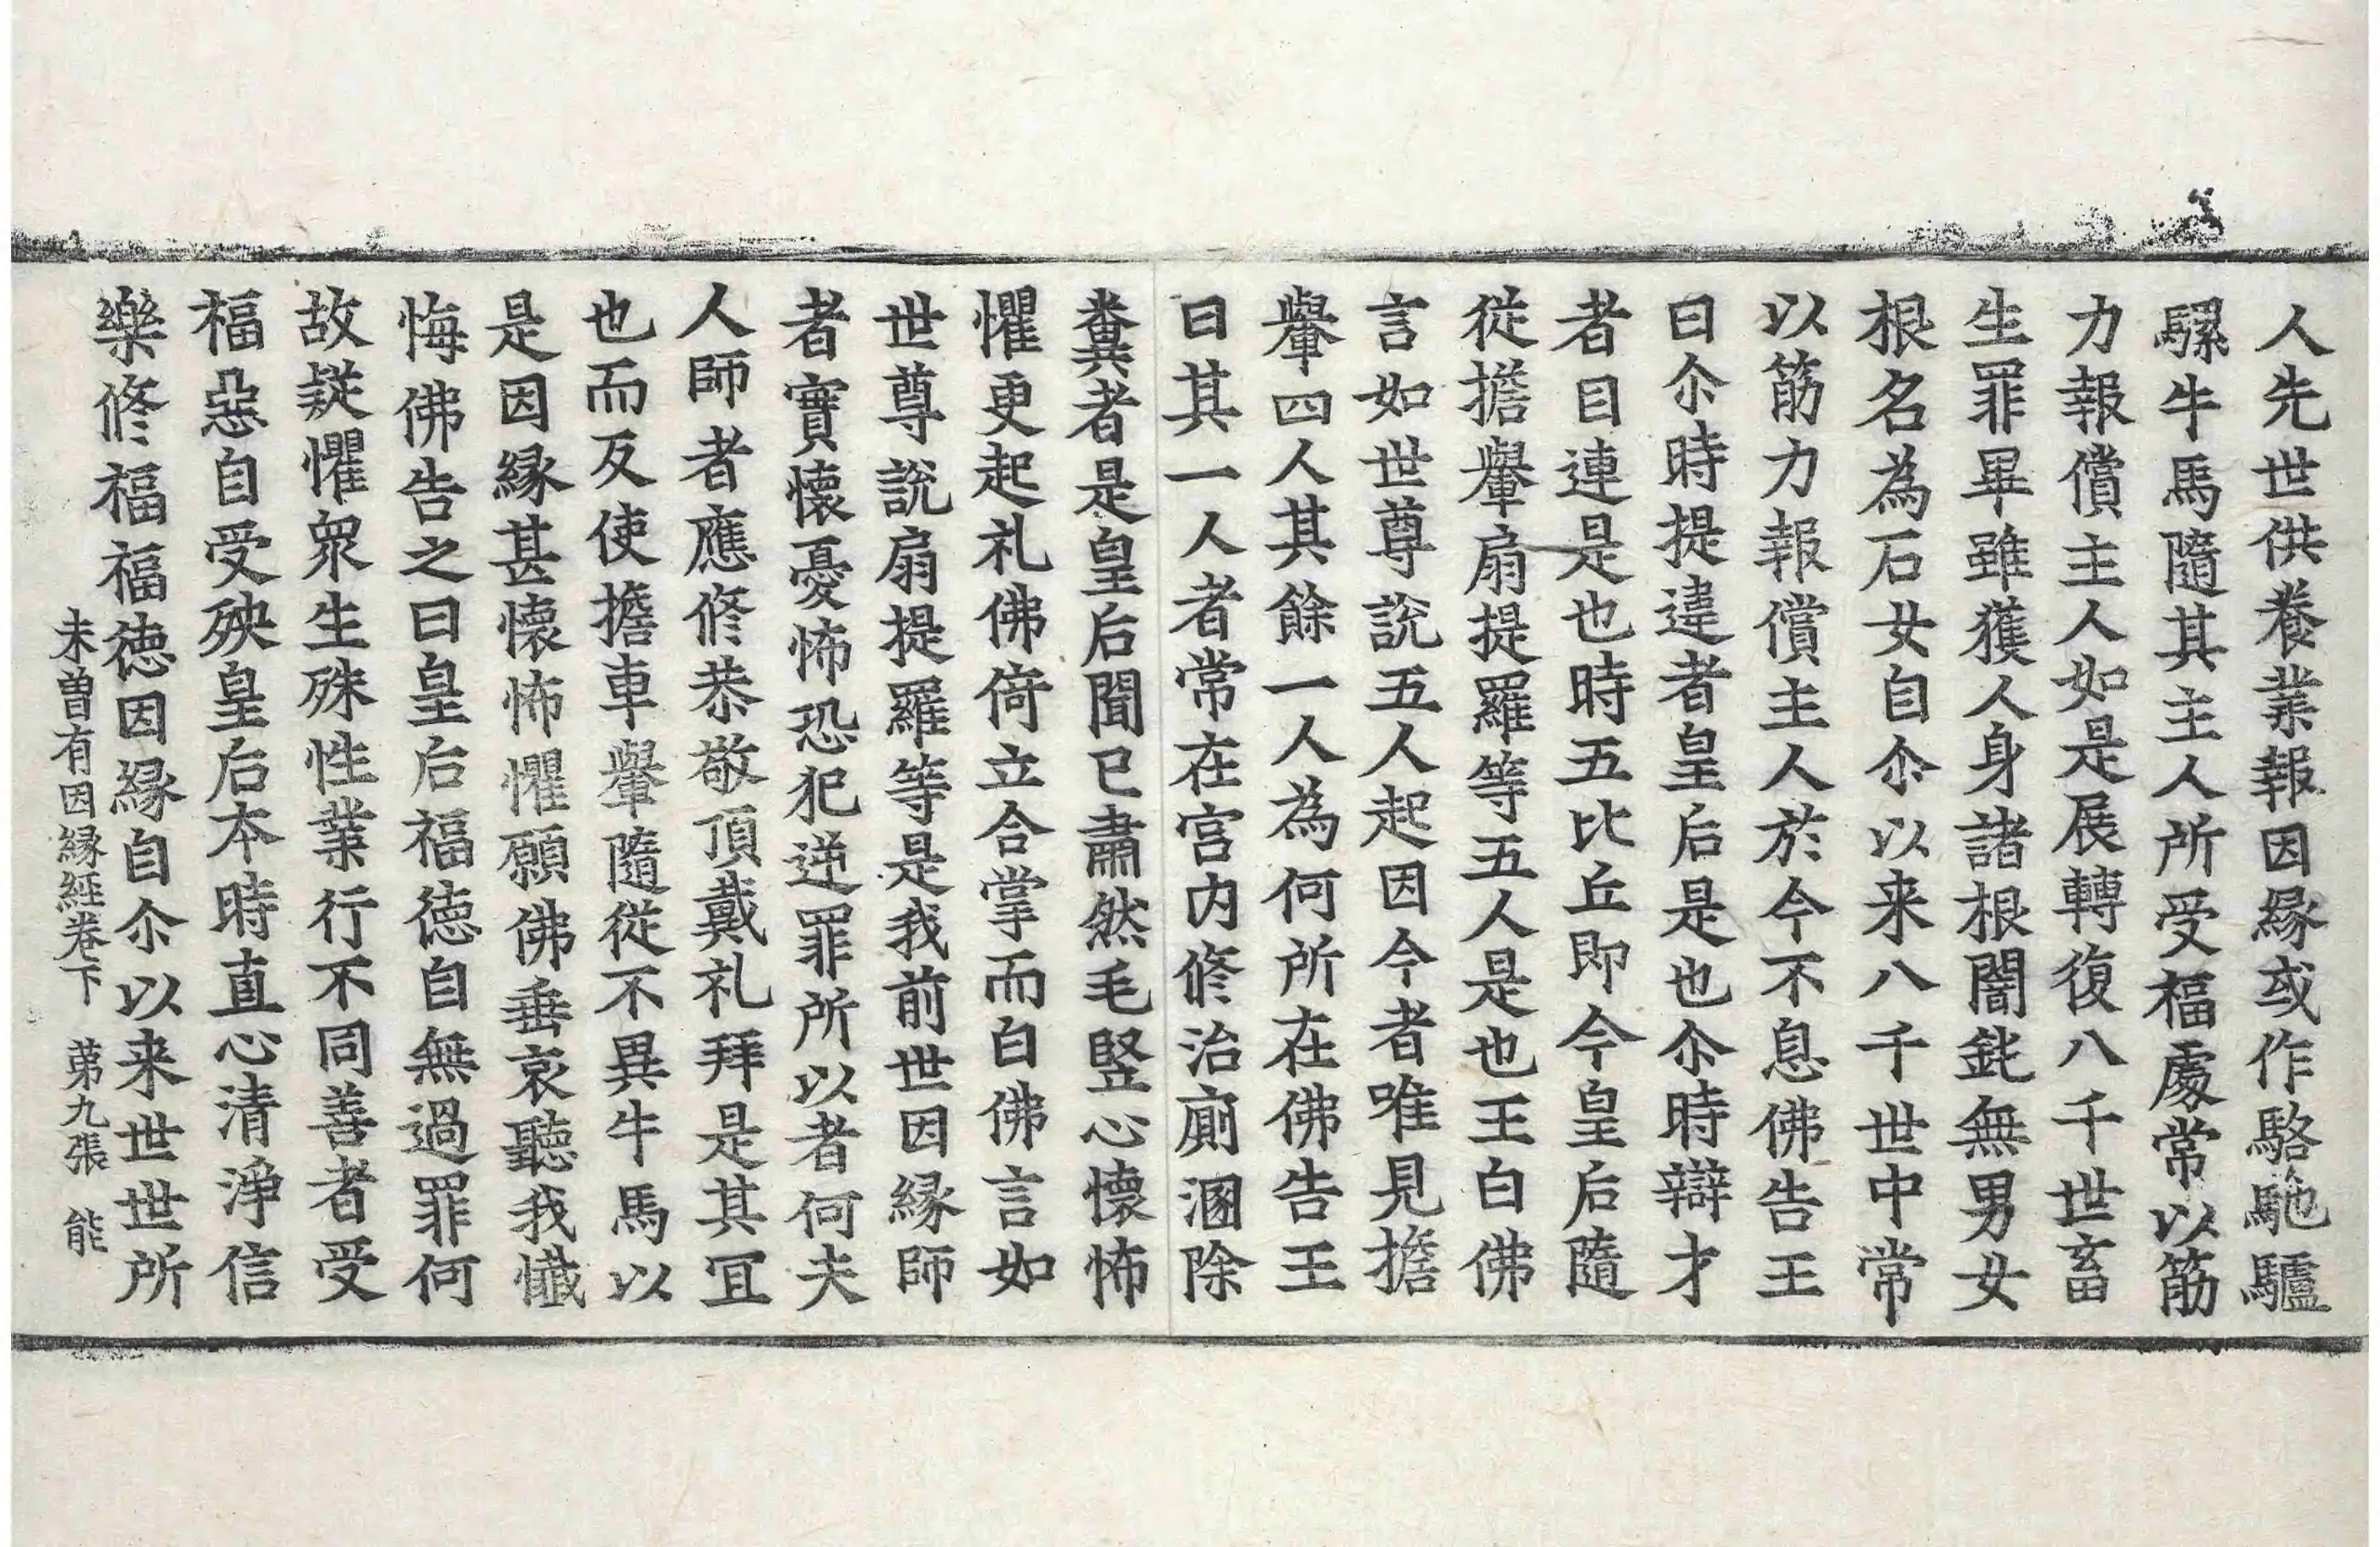 人先世供養業報因緣或作駱駞驢
騾牛馬隨其主人所受福處常以筋
力報償主人如是展轉復八千世畜
生罪畢雖獲人身諸根闇鈍無男女
根名為石女自尒以来八千世中常
以筋力報償主人於今不息佛告王
曰尒時提違者皇后是也尒時辯才
者目連是也時五比丘即今皇后隨
從擔轝扇提羅等五人是也王白佛
言如世尊說五人起因今者唯見擔
轝四人其餘一人為何所在佛告王
曰其一人者常在宮内修治廁溷除
糞者是皇后聞已肅然毛竪心懷怖
懼更起礼佛倚立合掌而白佛言如
世尊說扇提羅等是我前世因緣師
者實懷憂怖恐犯逆罪所以者何夫
人師者應修恭敬頂戴礼拜是其冝
也而反使擔車轝隨從不異牛馬以
是因緣甚懷怖懼願佛垂哀聽我懺
悔佛告之曰皇后福德自無過罪何
故疑懼衆生殊性業行不同善者受
福惡自受殃皇后本時直心清淨信
樂修福福德因緣自尒以来世世所
未曾有因緣經卷下 苐九張 能